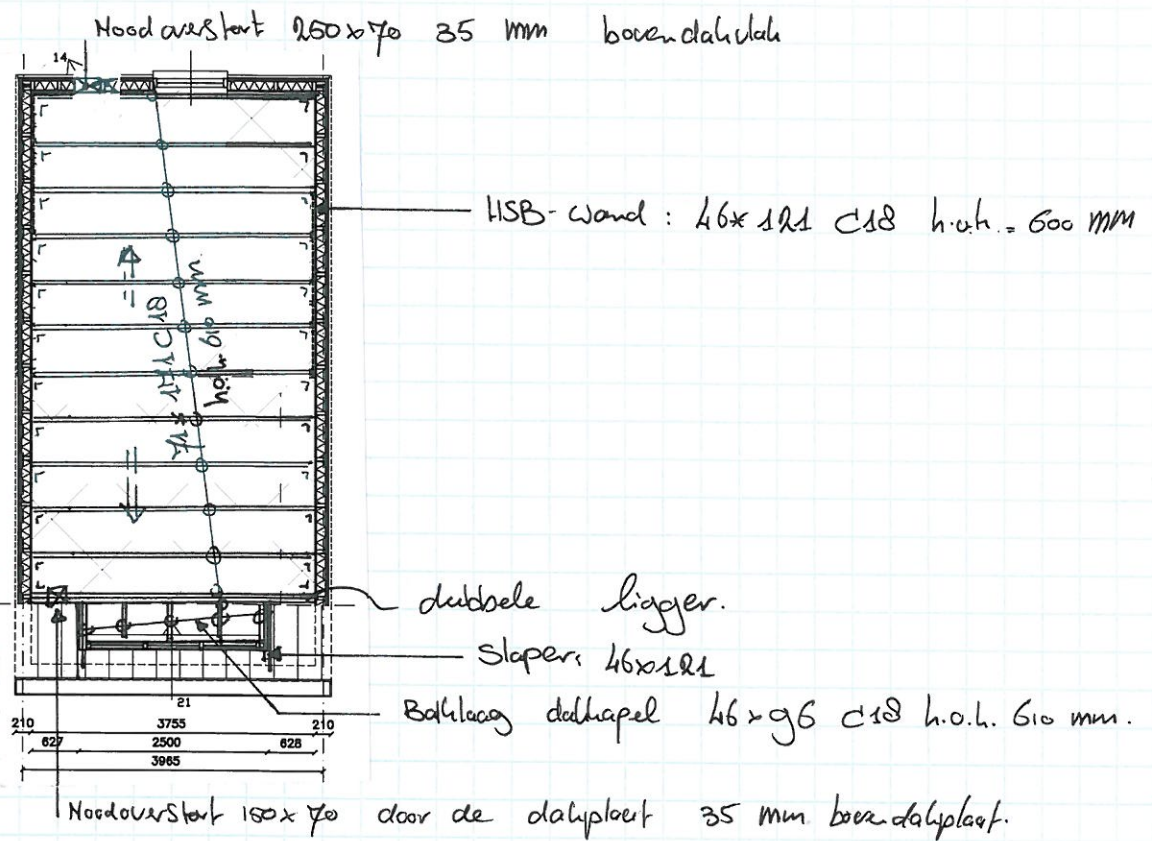 Noodoverstort 250x70 35 mm bovendakvlak
14
HSB-wand : 46x121 C18 h.o.h. = 600 mm
71x171 C18
h.o.h. 610 mm
dubbele ligger.
Slaper: 46x121
21
Balklaag dakkapel 46x96 C18 h.o.h. 610 mm.
210 3755 210
627 2500 628
3965
Noodoverstort 150x70 door de dakplaat 35 mm boven dakplaat.